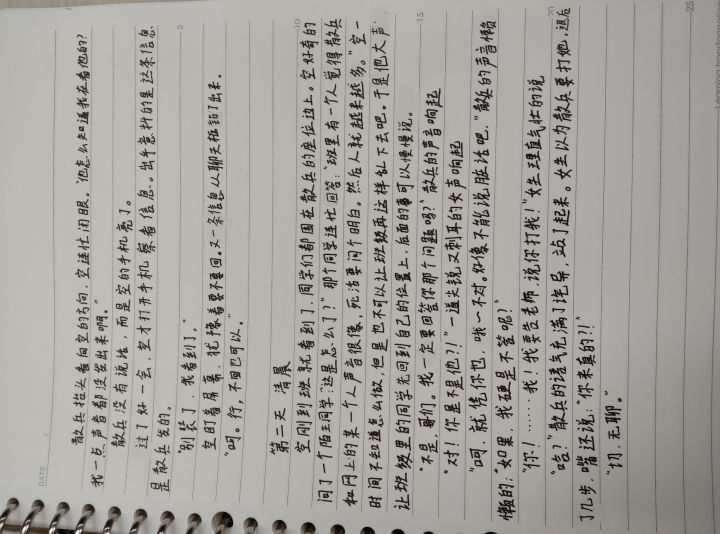 DATE
散兵抬头看向空的方向，空连忙闭眼。“他怎么知道我在看他的？
我一点声音都没发出来啊。”
散兵没有说话，而是空的手机亮了。
过了好一会，空才打开手机，察看信息。出乎意料的是这条信息
是散兵发的。
“别装了，我看到了。”
空盯着屏幕，犹豫着要不要回。又一条信息从聊天框弹了出来。
“呵。行，不回也可以。”
第二天 清晨
空刚到班就看到了，同学们都围在散兵的座位边上。空好奇的
问了一个陌生同学“这是怎么了？”那个同学连忙回答：“班里有一个人觉得散兵
和网上的某一个人声音很像，死活要问个明白。然后人就越来越多。”空一
时间不知道怎么做，但是也不可以让班级再这样乱下去吧。于是他大声
让班级里的同学先回到自己的位置上，后面的事可以慢慢说。
“不是，哥们。我一定要回答你那个问题吗？”散兵的声音响起
“对！你是不是他？！”一道尖锐又刺耳的女声响起
“呵，就凭你也，哦一不对。好像不能说脏话吧。”散兵的声音懒
懒的：“如果，我硬是不答呢？”
“你！……我！我要告老师，说你打我！”女生理直气壮的说
“哈？”散兵的语气充满了诧异，站了起来。女生以为散兵要打她，退后
了几步，嘴还说：“你来真的？！”
“切，无聊。”
5
10
15
20
25